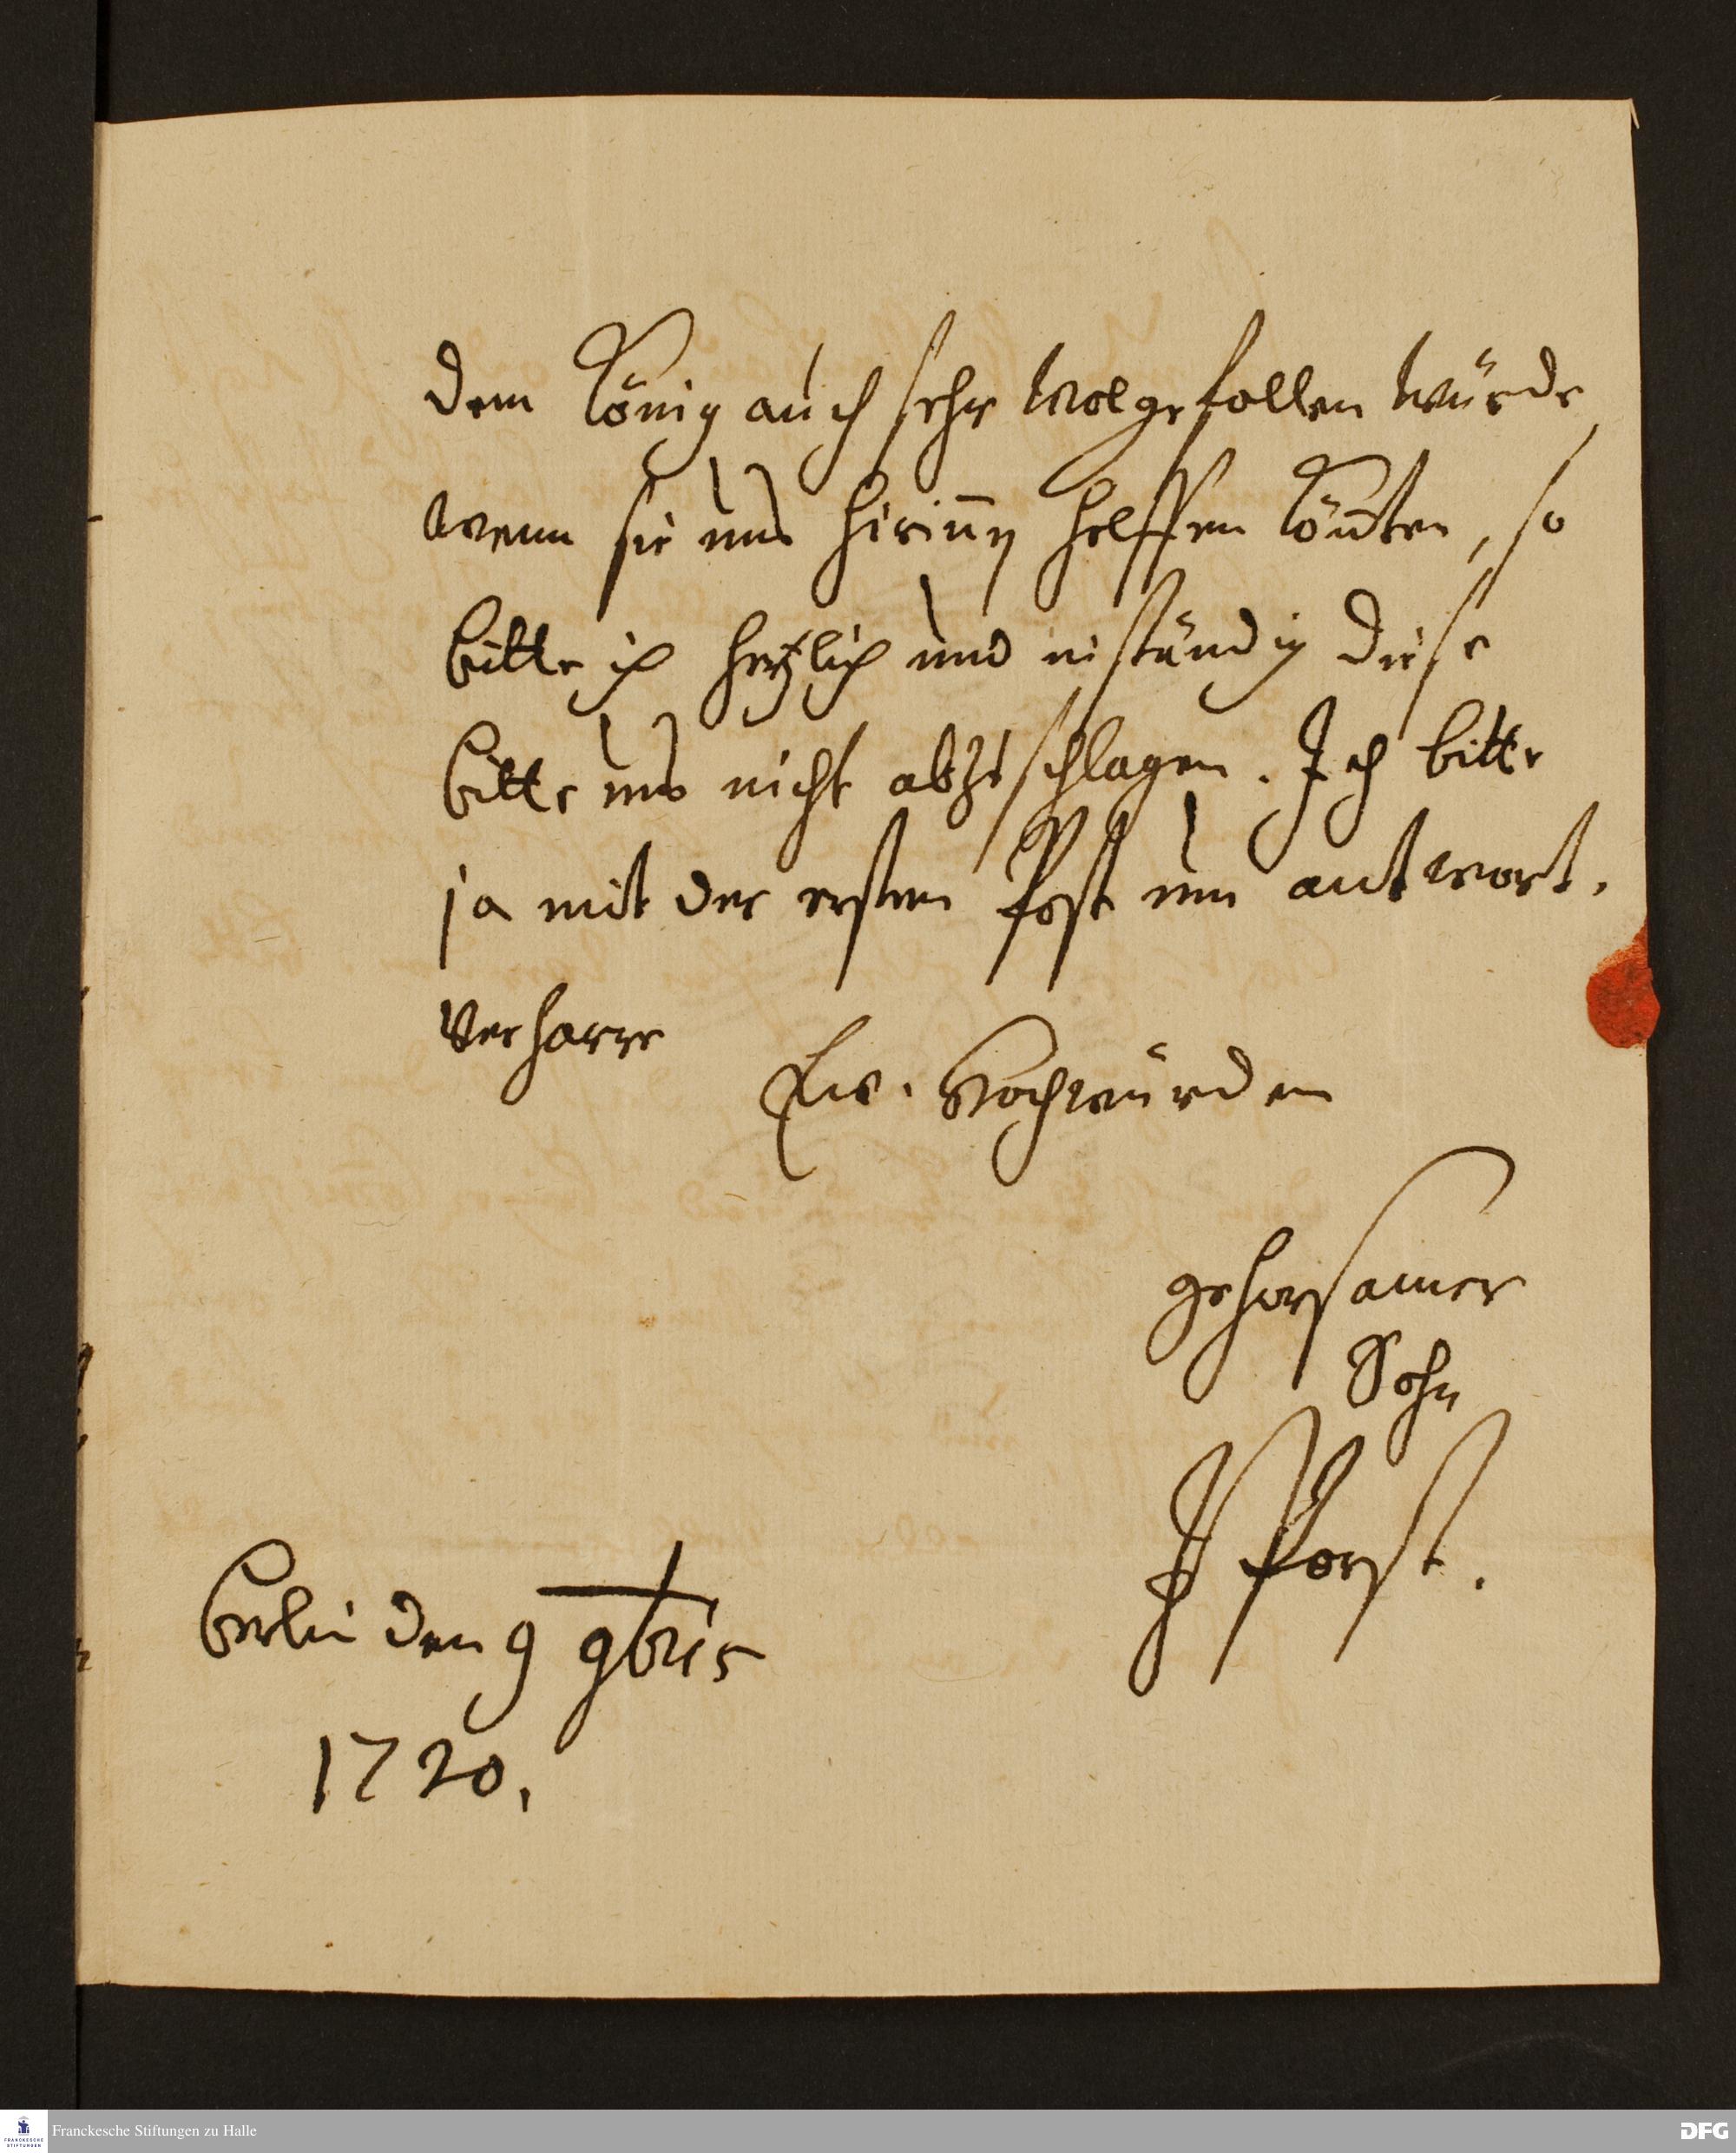 dem König auch sehr wol gefallen würde,
wenn sie uns hirinn helffen könten, so
bitte ich hertzlich und inständig diese
bitte uns nicht abzuschlagen. Ich bitte
ja mit der ersten Post um antwort.
Verharre
Ew. Hochwürden
gehorsamer
Sohn
J Porst.
Berlin den 9 9bris
1720.
Franckesche Stiftungen zu Halle
FRANCKESCHE
STIFTUNGEN
DFG